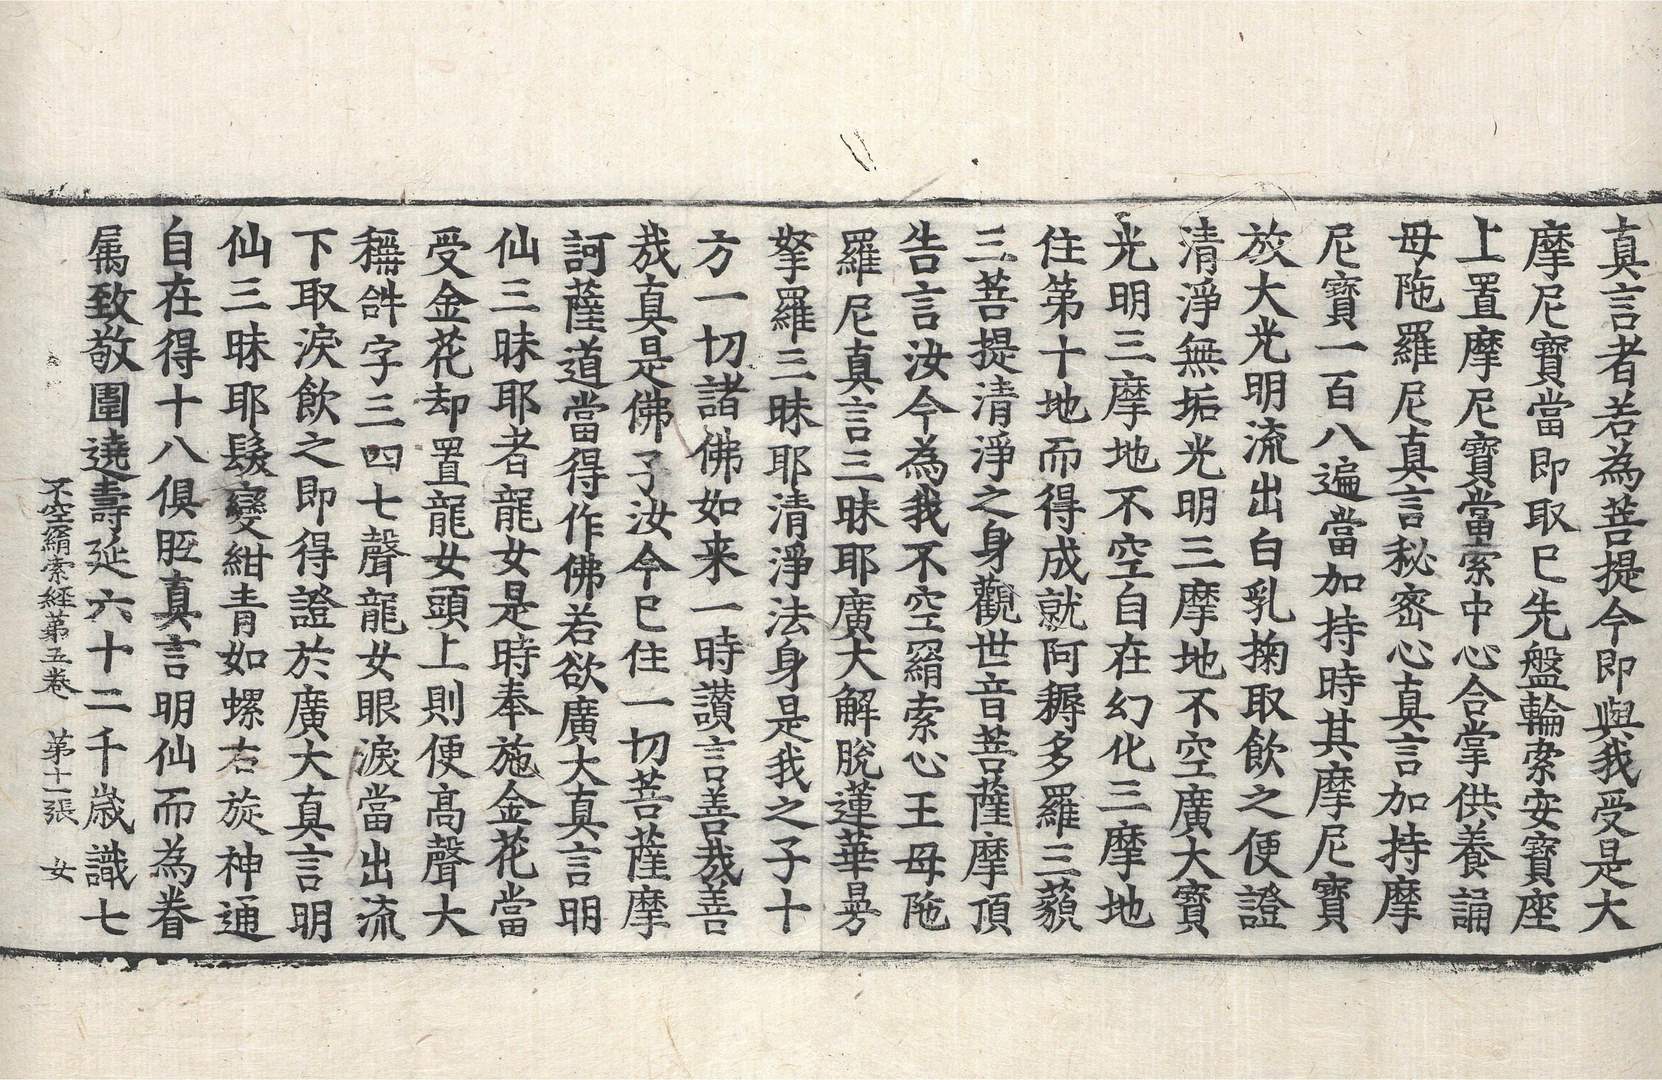 真言者若為菩提今即與我受是大
摩尼寶當即取已先盤輪索安寶座
上置摩尼寶當索中心合掌供養誦
母陁羅尼真言秘密心真言加持摩
尼寶一百八遍當加持時其摩尼寶
放大光明流出白乳掬取飲之便證
清淨無垢光明三摩地不空廣大寶
光明三摩地不空自在幻化三摩地
住第十地而得成就阿耨多羅三藐
三菩提清淨之身觀世音菩薩摩頂
告言汝今為我不空羂索心王母陁
羅尼真言三昧耶廣大解脫蓮華曼
拏羅三昧耶清淨法身是我之子十
方一切諸佛如来一時讚言善哉善
哉真是佛子汝今已住一切菩薩摩
訶薩道當得作佛若欲廣大真言明
仙三昧耶者龍女是時奉施金花當
受金花却置龍女頭上則便高聲大
稱𤙖字三四七聲龍女眼淚當出流
下取淚飲之即得證於廣大真言明
仙三昧耶髮變紺青如螺右旋神通
自在得十八俱胝真言明仙而為眷
属致敬圍遶壽延六十二千歲識七
不空羂索經第五卷 第十一張 女